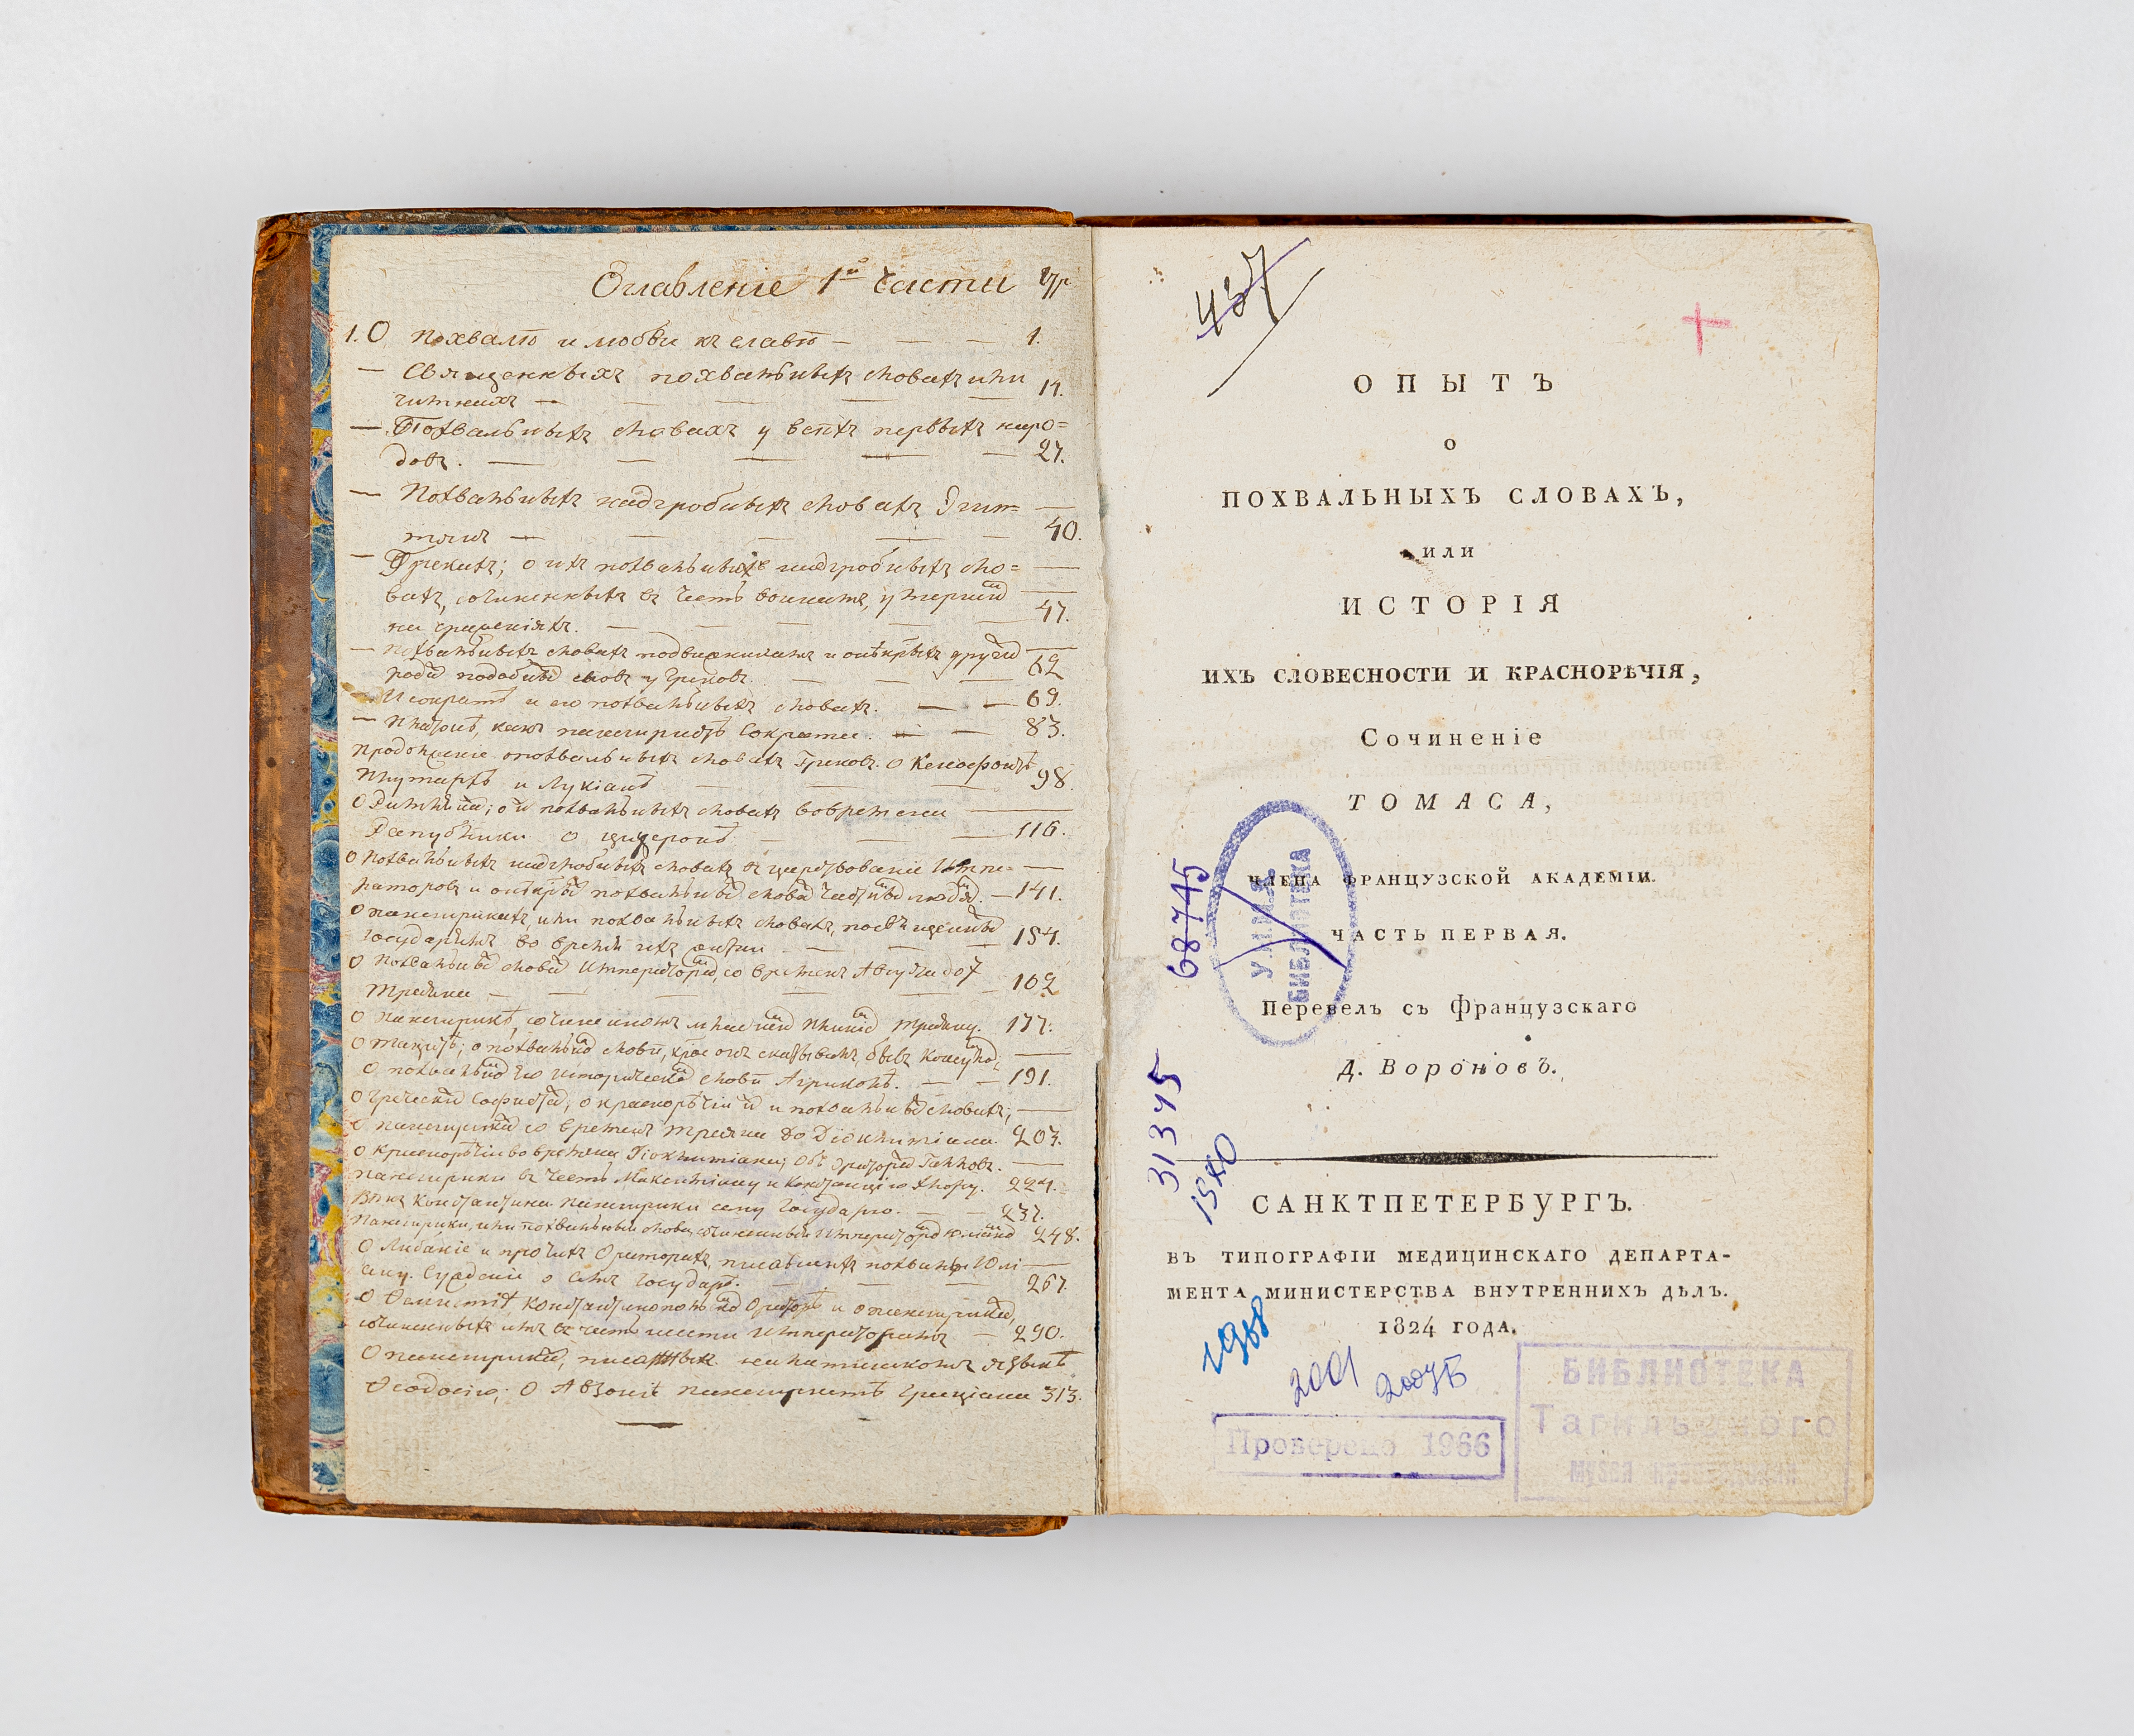 Оглавленіе 1й части
1. О похвалѣ и любви къ славѣ — — — 1.
— Священныхъ похвальныхъ словахъ или
гимнахъ — — — — — 14.
— Похвальныхъ словахъ у всѣхъ первыхъ наро=
довъ. — — — — — 27.
— Похвальныхъ надгробныхъ словахъ Египт=
тянъ — — — — — 40.
— Грекахъ; о ихъ похвальныхъ надгробныхъ сло=
вахъ, сочиненныхъ въ честь воинамъ,
на сраженіяхъ. — — — — 47.
— похвальныхъ словахъ
рода подобныхъ словъ у Грековъ — — — 62
Исократѣ и его похвальныхъ словахъ. — — 69.
— Платонѣ, какъ панегиристѣ Сократа. — — 83.
Продолженіе о похвальныхъ словахъ Грековъ. О Ксенофонтѣ
Плутархѣ и Лукіанѣ — — — 98.
похвальныхъ словахъ во время
Републики о Цицеронѣ — — — 116.
О похвальныхъ надгробныхъ словахъ въ царствованіе Импе=
раторовъ и — 141.
О панегирикахъ, или похвальныхъ словахъ,
государямъ во время ихъ жизни — — — 154.
О похвальныхъ словахъ Императорамъ, со временъ Августа до
Траяна — — — — — 162
О панегирикѣ, сочиненномъ Траяну. 177.
О Тацитѣ; о
О похвальномъ его историческомъ словѣ Агриколѣ. — — 191.
О греческихъ Софистахъ; о краснорѣчіи ихъ и похвальныхъ словахъ;
О панегирикахъ со временъ Траяна до Діоклитіана. 203.
О краснорѣчіи во времена Діоклитіана; Объ Ораторахъ Галловъ.
панегирики въ честь Максиміану и Констанцію Хлору. 224.
Вѣкъ Константина Панегирики сему Государю. — — 237.
Панегирики, или похвальныя слова, сочиненныя Императоромъ Юліаномъ 248.
О Либаніе и прочихъ Ораторахъ, писавшихъ похвалы Юлі
ану. Сужденіе о семъ Государѣ. — — — 267.
О Ѳемистіѣ Константинопольскомъ Ораторѣ и о панегирикахъ,
сочиненныхъ имъ въ честь шести Императорамъ — 290.
О панегирикахъ, писанныхъ на латинскомъ языкѣ
Ѳеодосію; О Авзоніѣ панегиристѣ Граціана 313.
437
ОПЫТЪ
О
ПОХВАЛЬНЫХЪ СЛОВАХЪ,
ИЛИ
ИСТОРІЯ
ИХЪ СЛОВЕСНОСТИ И КРАСНОРѢЧІЯ,
Сочиненіе
ТОМАСА,
ЧЛЕНА ФРАНЦУЗСКОЙ АКАДЕМІИ.
ЧАСТЬ ПЕРВАЯ.
Перевелъ съ Французскаго
Д. Вороновъ.
68745
БИБЛИОТЕКА
31345
САНКТПЕТЕРБУРГЪ.
ВЪ ТИПОГРАФІИ МЕДИЦИНСКАГО ДЕПАРТА-
МЕНТА МИНИСТЕРСТВА ВНУТРЕННИХЪ ДѢЛЪ.
1824 ГОДА.
1988
2001
Проверено 1966
БИБЛИОТЕКА
Тагильского
музея краеведения